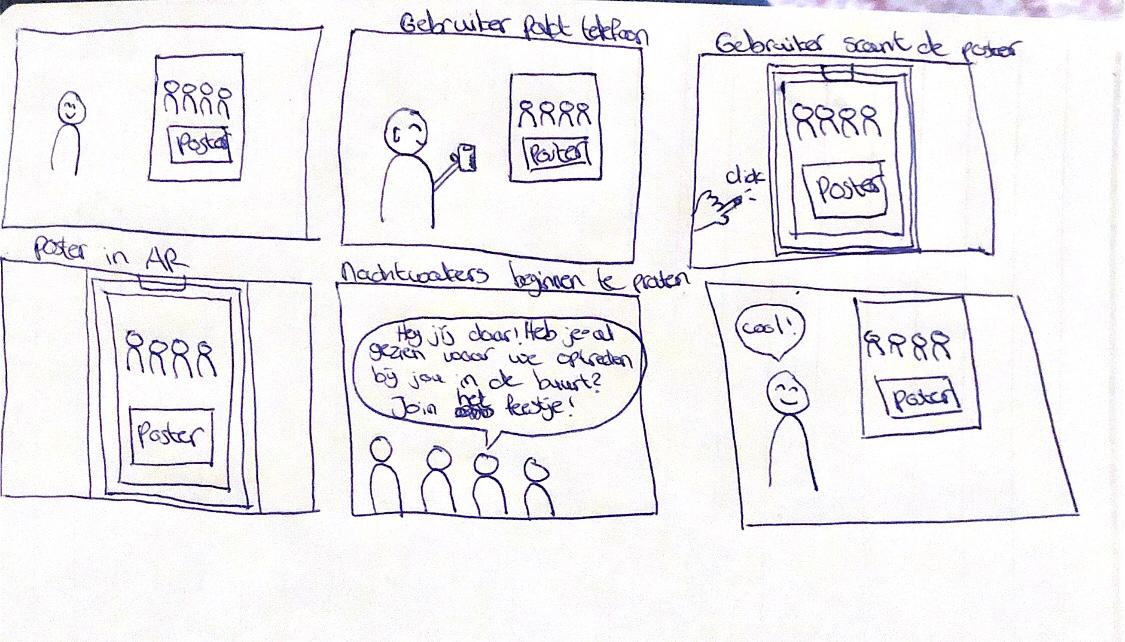 Gebruiker pakt telefoon
Gebruiker scant de poster
Poster
Poster
click
Poster
poster in AR
Nachtwakers beginnen te praten
Poster
Hey jij daar! Heb je al
gezien waar we optreden
bij jou in de buurt?
Join het feestje!
cool!
Poster